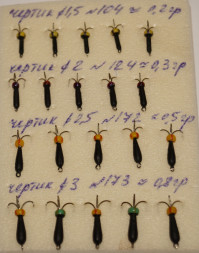 чертик ∅1,5 №104 ≈ 0,2гр
чертик ∅2 №124 ≈ 0,3гр
чертик ∅2,5 №172 ≈ 0,5гр
чертик ∅3 №173 ≈ 0,8гр